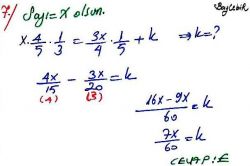 7./ Sayı=x olsun.
x·4/5·1/3 = 3x/4·1/5 + k ⇒k=?
4x/15 - 3x/20 = k
(4) (3)
16x-9x/60 = k
7x/60 = k
CEVAP: E